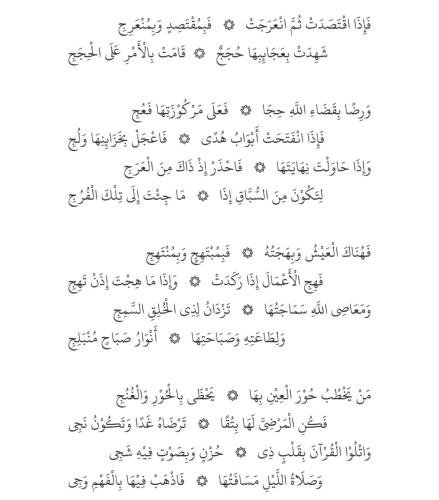 فَإِذَا اقْتَصَدَتْ ثُمَّ انْعَرَجَتْ ۞ فَبِمُقْتَصِدٍ وَبِمُنْعَرِجِ
شَهِدَتْ بِعَجَايِبِهَا حُجَجٌ ۞ قَامَتْ بِالْأَمْرِ عَلَى الْحِجَجِ
وَرِضًا بِقَضَاءِ اللّٰهِ حِجَا ۞ فَعَلَى مَرْكُوزَتِهَا فَعُجِ
فَإِذَا انْفَتَحَتْ أَبْوَابُ هُدًى ۞ فَاعْجَلْ بِخَزَايِنِهَا وَلُجِ
وَإِذَا حَاوَلْتَ نِهَايَتَهَا ۞ فَاحْذَرْ إِذْ ذَاكَ مِنَ الْعَرَجِ
لِتَكُوْنَ مِنَ السُّبَّاقِ إِذَا ۞ مَا جِئْتَ إِلَى تِلْكَ الْفُرُجِ
فَهُنَاكَ الْعَيْشُ وَبِهَجَتُهُ ۞ فَبِمُبْتَهِجٍ وَبِمُنْتَهِجِ
فَهِجِ الْأَعْمَالَ إِذَا رَكَدَتْ ۞ وَإِذَا مَا هِجْتَ إِذَنْ تَهِجِ
وَمَعَاصِى اللّٰهِ سَمَاجَتُهَا ۞ تَزْدَانُ لِذِى الْخُلِقِ السَّمِجِ
وَلِطَاعَتِهِ وَصَبَاحَتِهَا ۞ أَنْوَارُ صَبَاحٍ مُنْبَلِجِ
مَنْ يَخْطُبُ حُوْرَ الْعِيْنِ بِهَا ۞ يَحْظَى بِالْحُوْرِ وَالْغُنُجِ
فَكُنِ الْمَرْضِىَّ لَهَا بِتُقًا ۞ تَرْضَاهُ غَدًا وَتَكُوْنُ نَجِى
وَاتْلُوْا الْقُرْآنَ بِقَلْبٍ ذِى ۞ حُزْنٍ وَبِصَوْتٍ فِيْهِ شَجِى
وَصَلَاةُ اللَّيْلِ مَسَافَتُهَا ۞ فَاذْهَبْ فِيْهَا بِالْفَهْمِ وَجِى